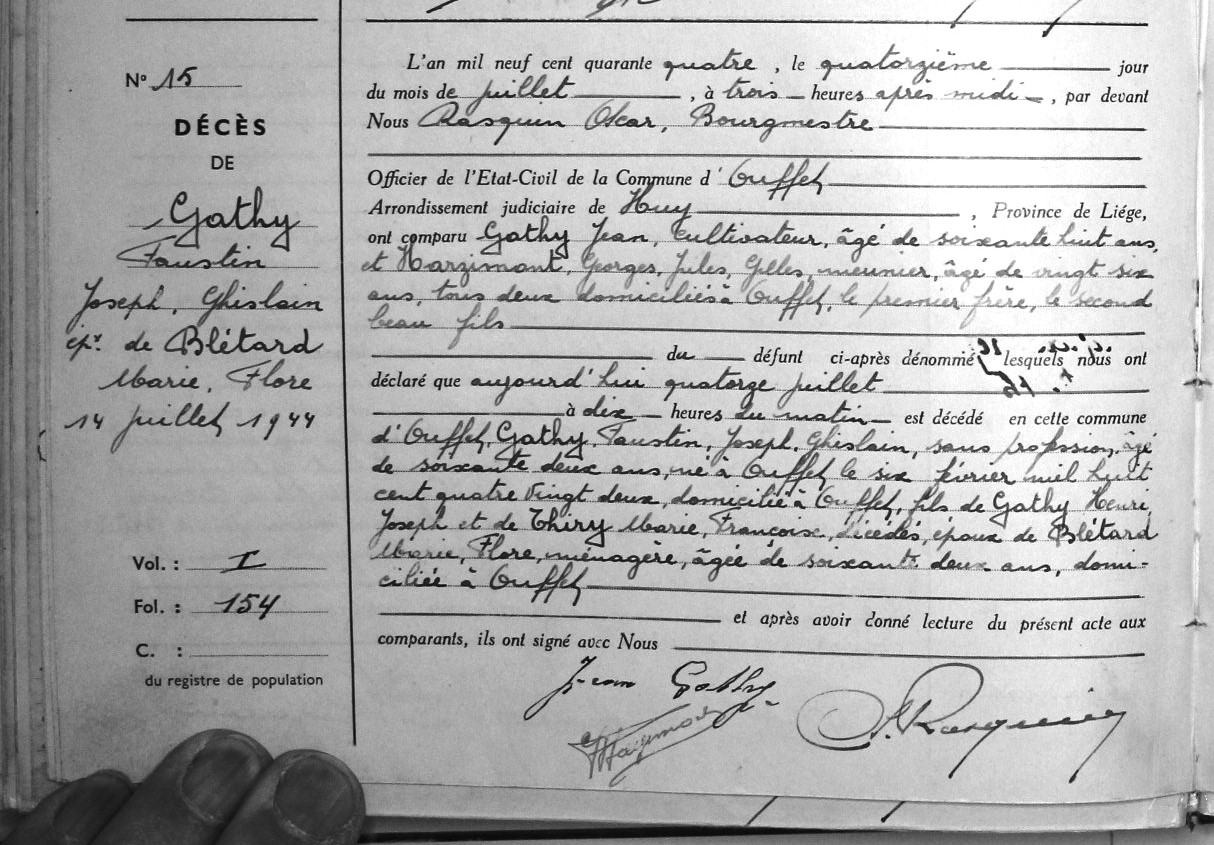 N° 15
DÉCÈS
DE
Gathy
Faustin
Joseph, Ghislain
épx. de Blétard
Marie, Flore
14 juillet 1944
Vol. : I
Fol. : 154
C. :
du registre de population
L'an mil neuf cent quarante quatre, le quatorzième jour
du mois de juillet, à trois heures après midi, par devant
Nous Rasquin Oscar, Bourgmestre
Officier de l'Etat-Civil de la Commune d'Ouffet
Arrondissement judiciaire de Huy, Province de Liége,
ont comparu Gathy Jean, cultivateur, âgé de soixante huit ans,
et Harzimont, Georges, Jules, Gilles, meunier, âgé de vingt six
ans, tous deux domiciliés à Ouffet, le premier frère, le second
beau fils
du défunt ci-après dénommé lesquels nous ont
déclaré que aujourd'hui quatorze juillet
à dix heures du matin est décédé en cette commune
d'Ouffet, Gathy, Faustin, Joseph, Ghislain, sans profession, âgé
de soixante deux ans, né à Ouffet le six février mil huit
cent quatre vingt deux, domicilié à Ouffet, fils de Gathy Henri,
Joseph et de Thiry Marie, Françoise, décédés, époux de Blétard
Marie, Flore, ménagère, âgée de soixante deux ans, domi-
ciliée à Ouffet
et après avoir donné lecture du présent acte aux
comparants, ils ont signé avec Nous
Jean Gathy
Rasquin